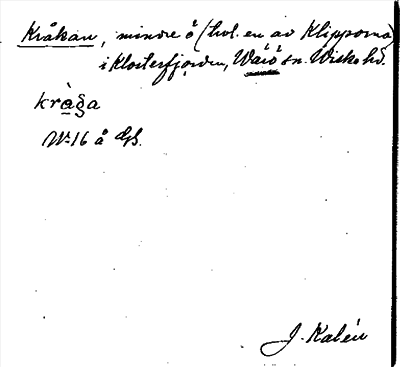 Kråkan, mindre ö (hol. en av Klipporna)
i Klosterfjorden, Värö sn. Viske hd.
kràga
W:16 å Gb.
J. Kalén